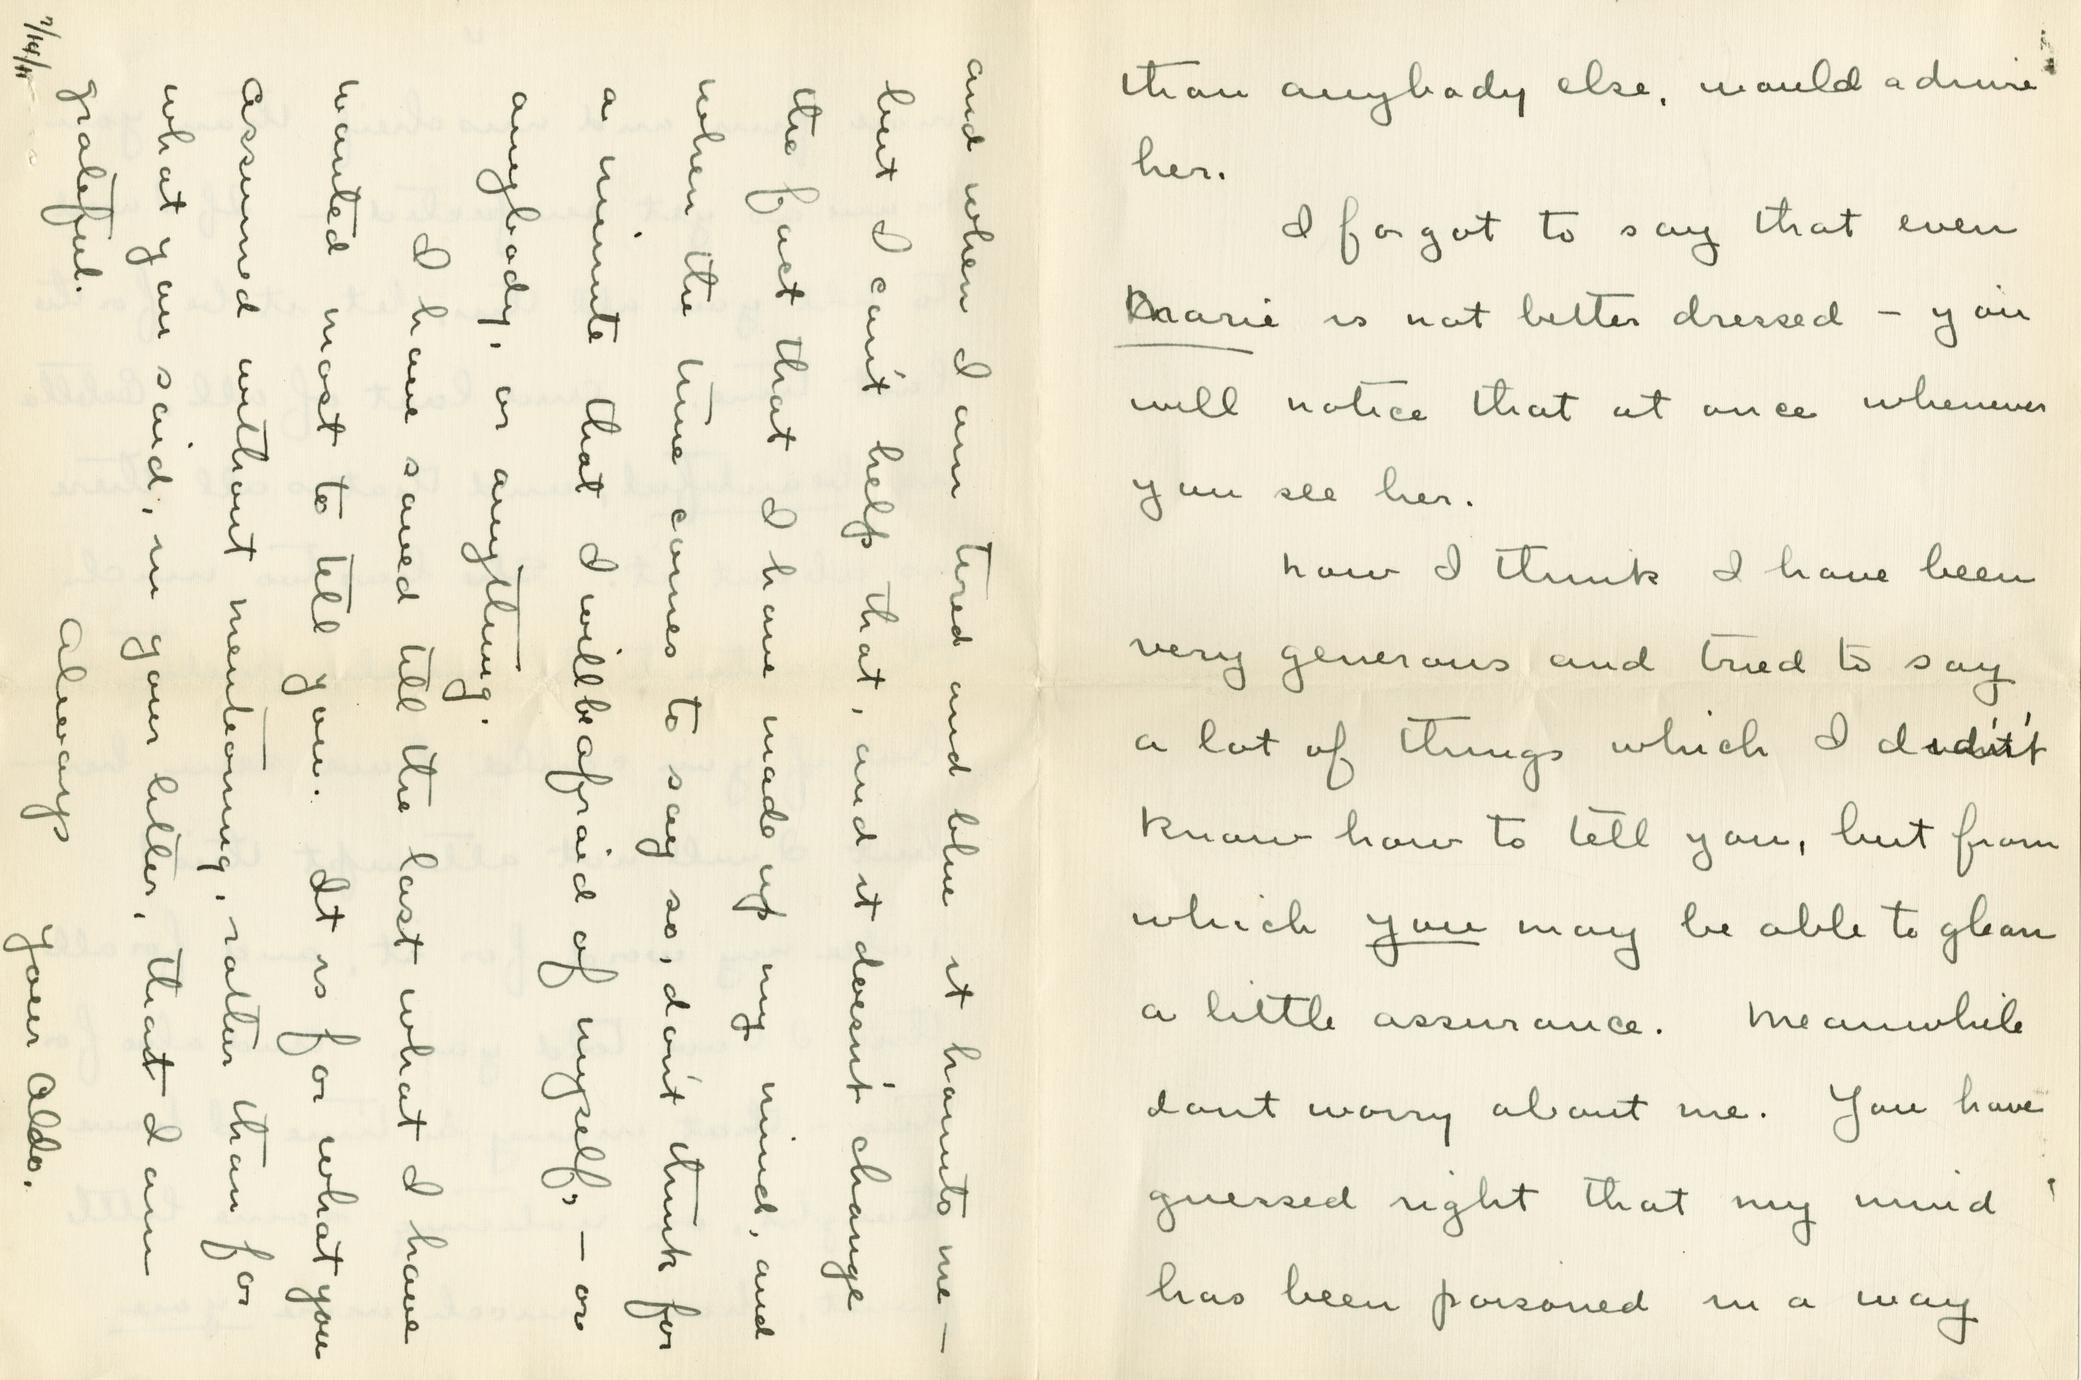 than anybody else, would admire
her.
I forgot to say that even
Marie is not better dressed – you
will notice that at once whenever
you see her.
Now I think I have been
very generous and tried to say
a lot of things which I didn't
know how to tell you, but from
which you may be able to glean
a little assurance. Meanwhile
dont worry about me. You have
guessed right that my mind
has been poisoned in a way
and when I am tired and blue it haunts me –
but I can't help that, and it doesn't change
the fact that I have made up my mind, and
when the time comes to say so, don't think for
a minute that I will be afraid of myself, – or
anybody, or anything.
I have saved till the last what I have
wanted most to tell you. It is for what you
assumed without mentioning, rather than for
what you said, in your letter, that I am
grateful.
Always
your Aldo.
7/14/11